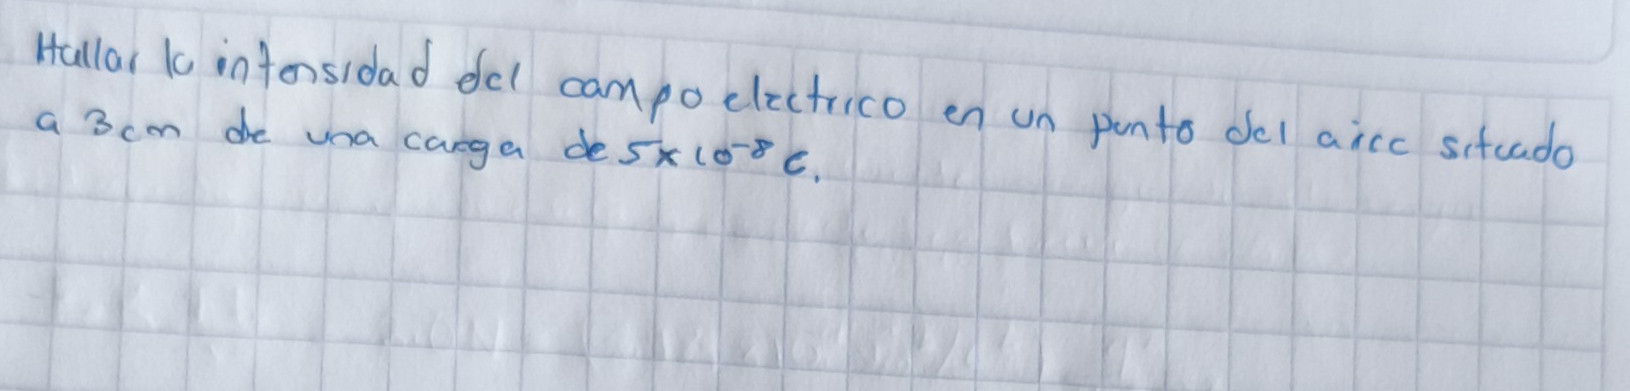 Hallar la intensidad del campo electrico en un punto del aire situado
a 3cm de una carga de 5x10⁻⁸ C.